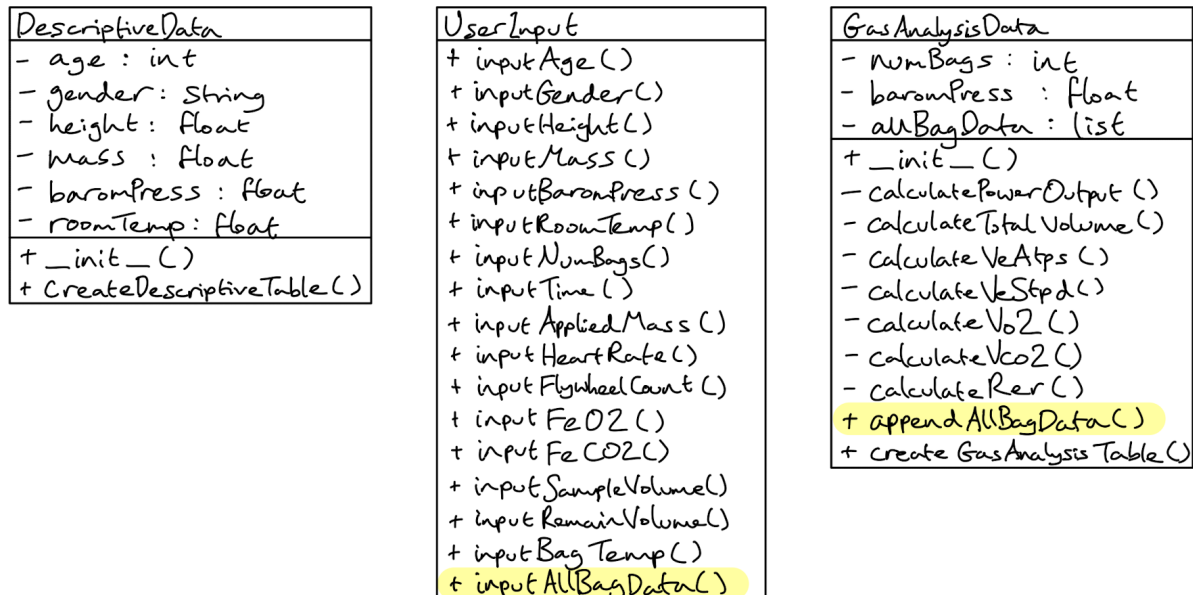 DescriptiveData
- age : int
- gender : String
- height : float
- mass : float
- baromPress : float
- roomTemp : float
+ __init__()
+ createDescriptiveTable()
UserInput
+ inputAge()
+ inputGender()
+ inputHeight()
+ inputMass()
+ inputBaromPress()
+ inputRoomTemp()
+ inputNumBags()
+ inputTime()
+ inputAppliedMass()
+ inputHeartRate()
+ inputFlywheelCount()
+ inputFeO2()
+ inputFeCO2()
+ inputSampleVolume()
+ inputRemainVolume()
+ inputBagTemp()
+ inputAllBagData()
GasAnalysisData
- numBags : int
- baromPress : float
- allBagData : list
+ __init__()
- calculatePowerOutput()
- calculateTotalVolume()
- calculateVeAtps()
- calculateVeStpd()
- calculateVo2()
- calculateVco2()
- calculateRer()
+ appendAllBagData()
+ createGasAnalysisTable()